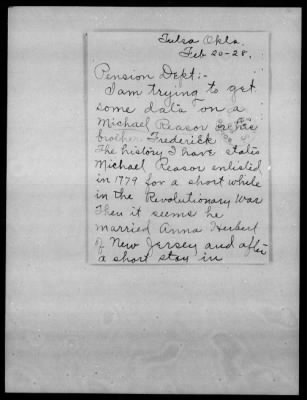 Tulsa Okla.
Feb 20-28.
Pension Dept:-
I am trying to get
some data on a
Michael Reasor or his
brother Frederick
The history I have stats
Michael Reasor enlisted
in 1779 for a short while
in the Revolutionary War
Then it seems he
married Anna Herbert
of New Jersey and after
a short stay in